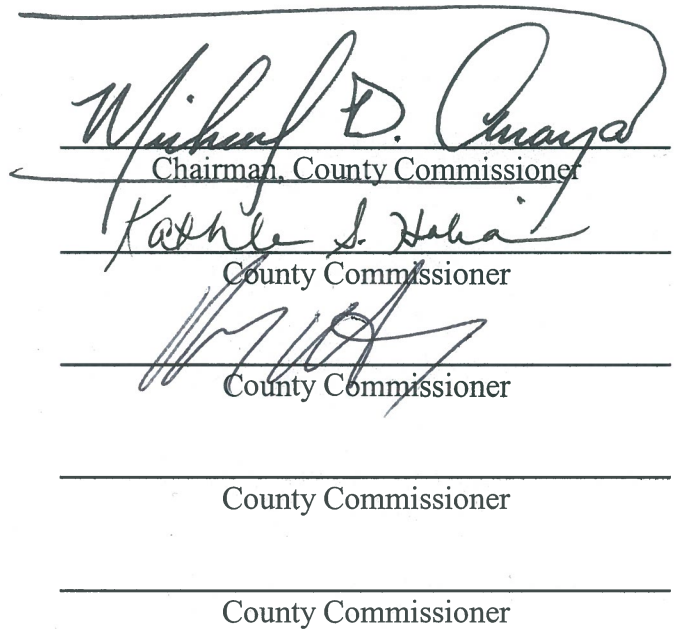 Michael D. Amaya
Chairman, County Commissioner
Kathle S.
County Commissioner
County Commissioner
County Commissioner
County Commissioner